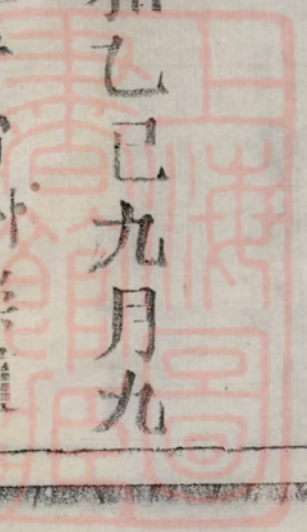 乙巳九月九
上海圖
書館藏